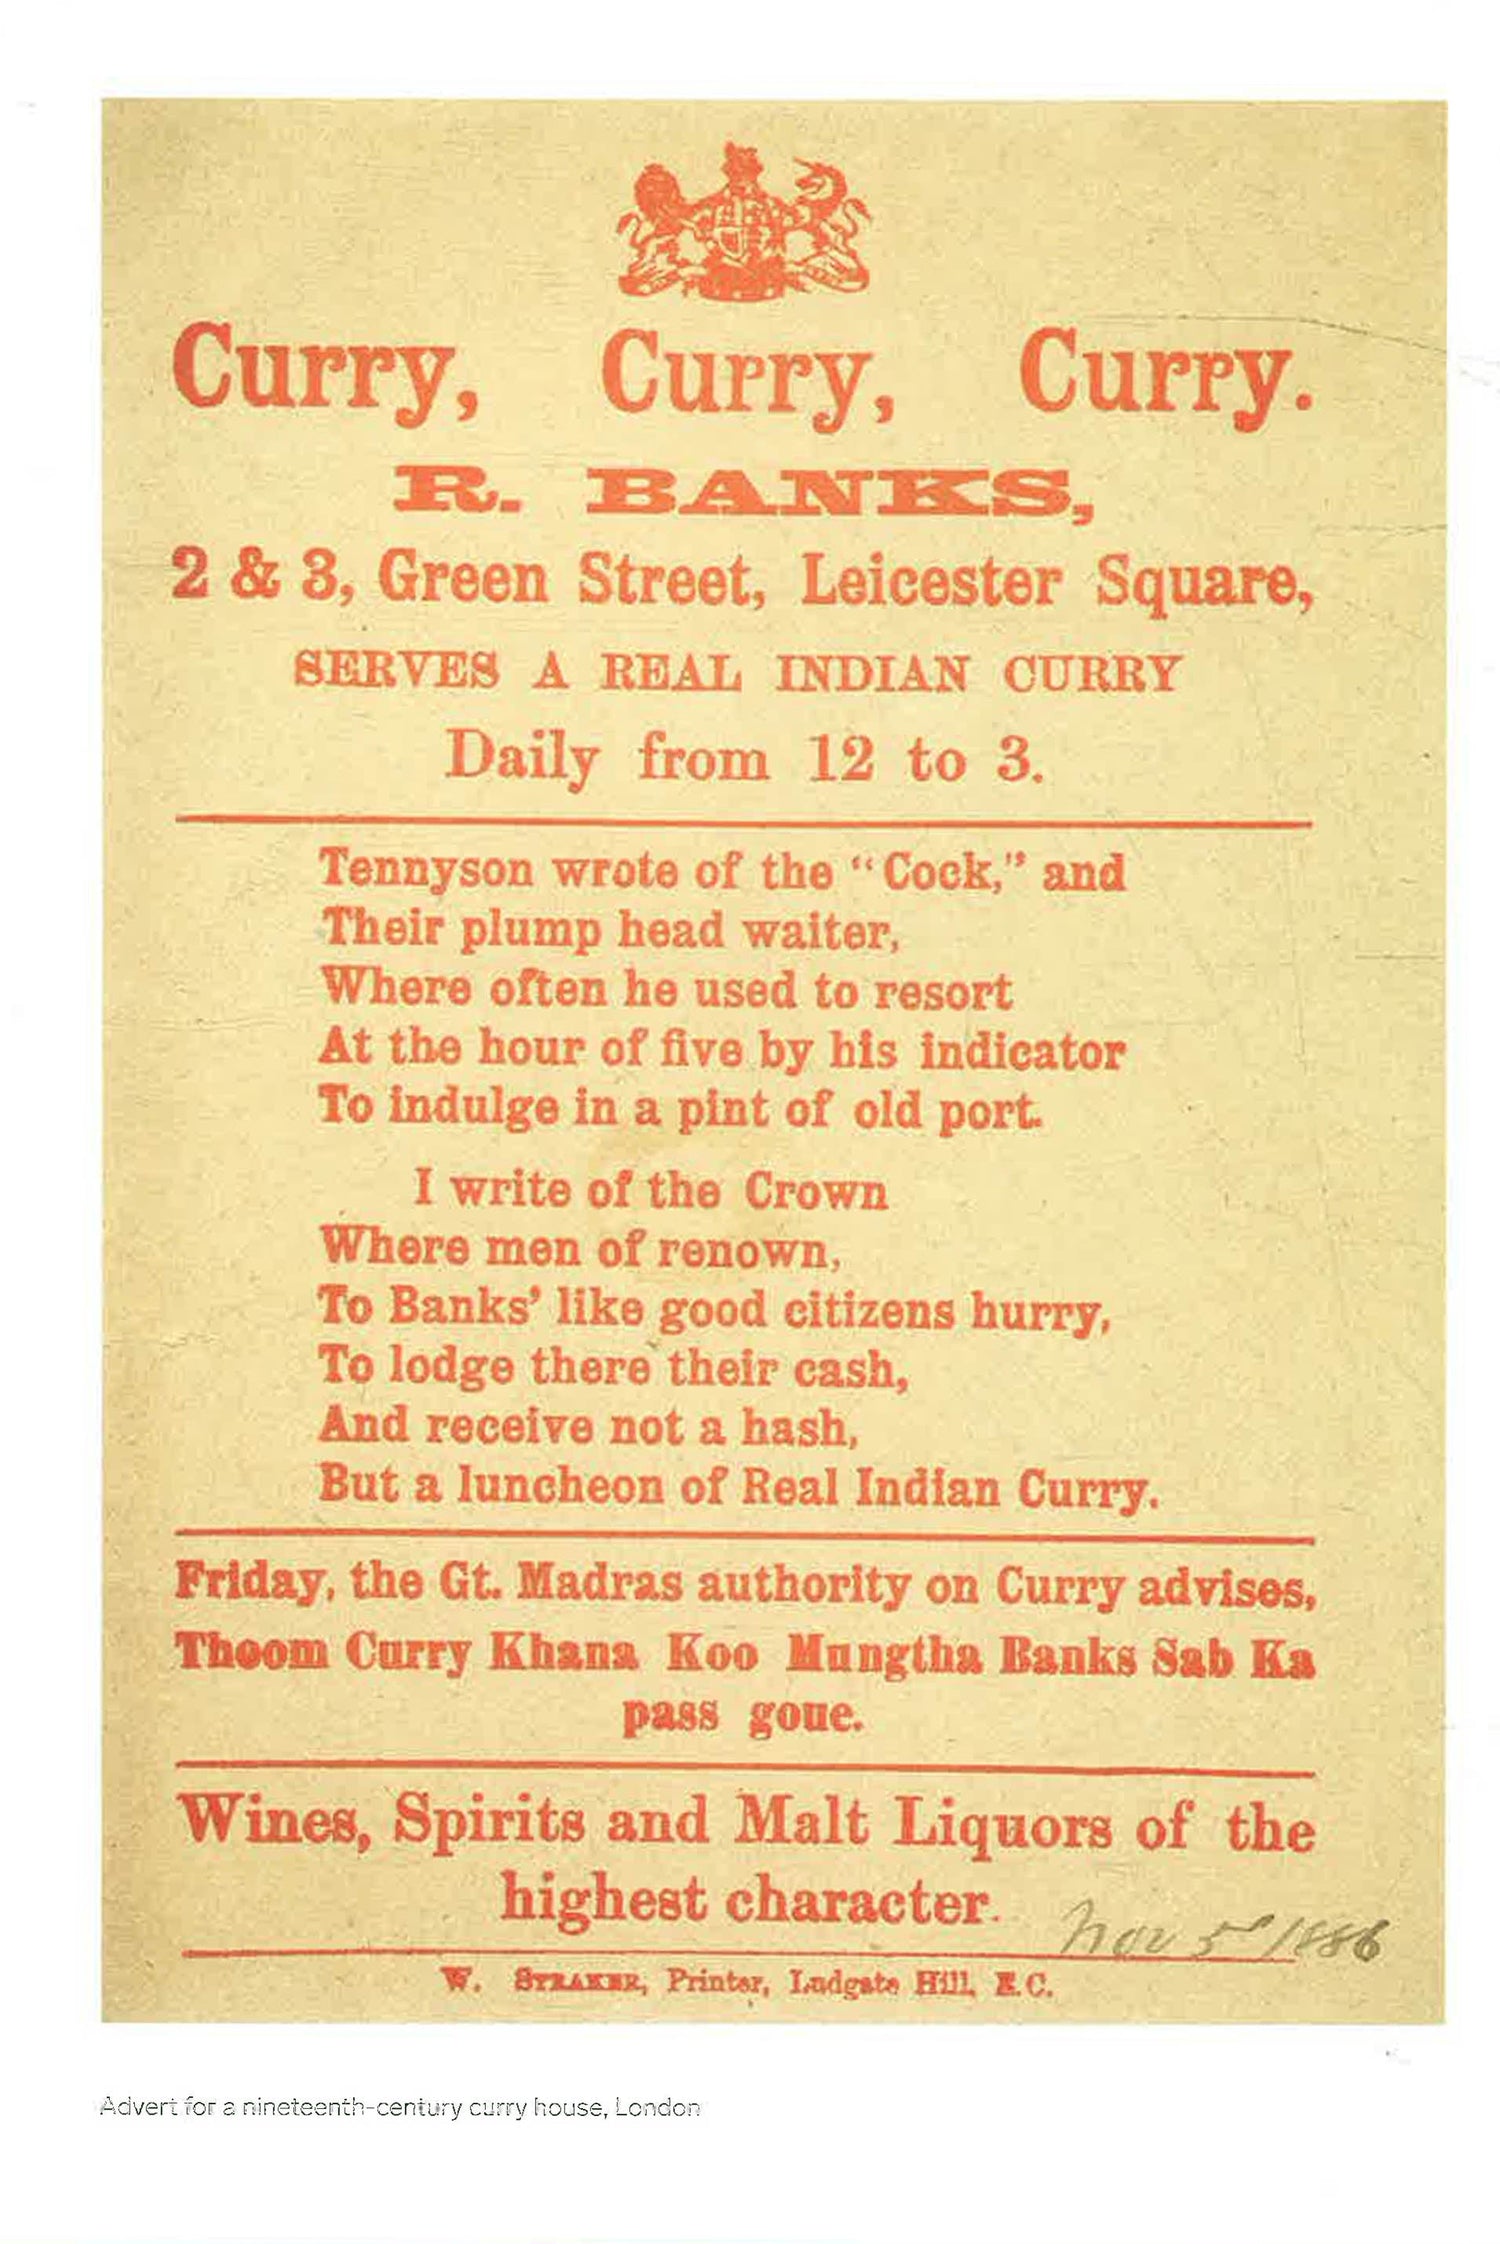 Curry, Curry, Curry.
R. BANKS,
2 & 3, Green Street, Leicester Square,
SERVES A REAL INDIAN CURRY
Daily from 12 to 3.
Tennyson wrote of the “Cock,” and
Their plump head waiter,
Where often he used to resort
At the hour of five by his indicator
To indulge in a pint of old port.
I write of the Crown
Where men of renown,
To Banks’ like good citizens hurry,
To lodge there their cash,
And receive not a hash,
But a luncheon of Real Indian Curry.
Friday, the Gt. Madras authority on Curry advises,
Thoom Curry Khana Koo Mungtha Banks Sab Ka
pass goue.
Wines, Spirits and Malt Liquors of the
highest character.
Nov 5 1886
W. STRAKER, Printer, Ludgate Hill, E.C.
Advert for a nineteenth-century curry house, London